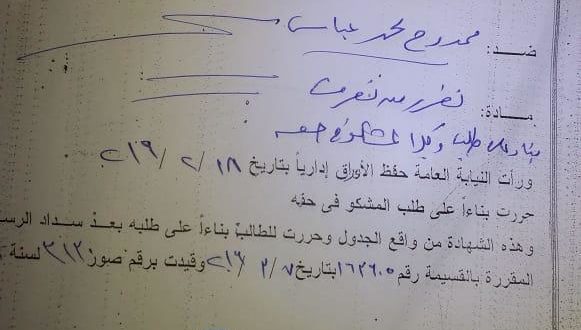 ضد: ممدوح محمد عباس
مادة: تضرر من تصرف
بناء على طلب وكيل المشكو في حقه
ورأت النيابة العامة حفظ الأوراق إدارياً بتاريخ ١٨/٢/٢٠١٩
حررت بناءاً على طلب المشكو فى حقه
وهذه الشهادة من واقع الجدول وحررت للطالب بناءاً على طلبه بعد سداد الرس
المقررة بالقسيمة رقم ١٦٣٦٠٥ بتاريخ ٧/٣/ وقيدت برقم صور ٣١٣ لسنة